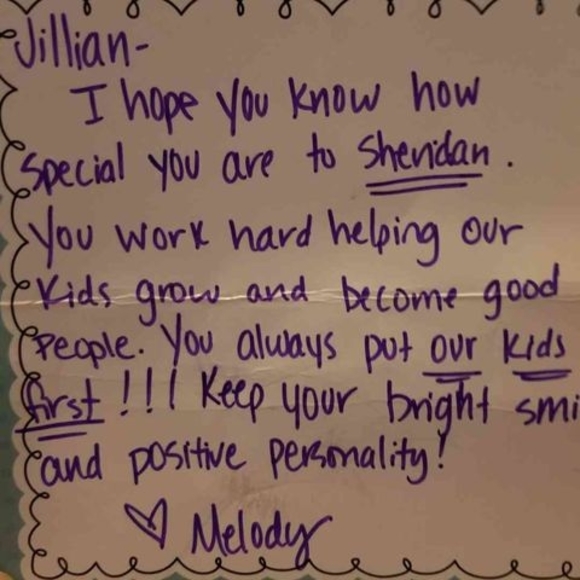 Jillian-
I hope you know how
special you are to Sheridan.
You work hard helping our
kids grow and become good
people. You always put our kids
first!!! Keep your bright smi
and positive personality!
♡ Melody